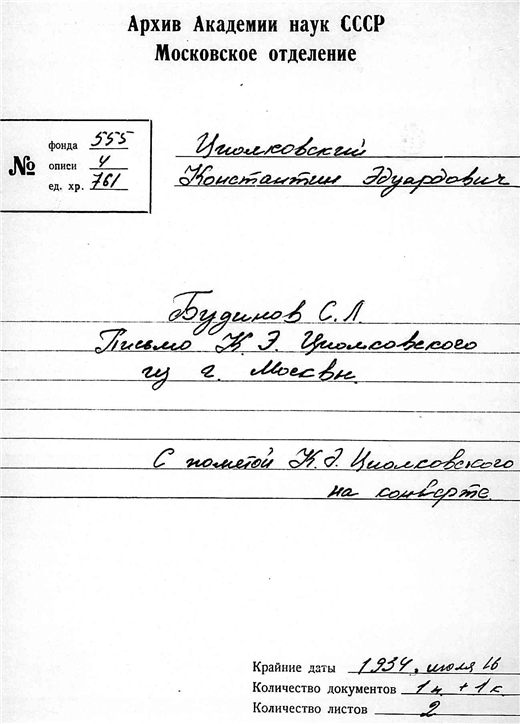 Архив Академии наук СССР
Московское отделение
№
фонда 555
описи 4
ед. хр. 761
Циолковский
Константин Эдуардович
Будинов С.Л.
Письмо К.Э. Циолковского
из г. Москвы.
С пометой К.Э. Циолковского
на конверте.
Крайние даты 1934, июля 16
Количество документов 1 п. + 1 к.
Количество листов 2